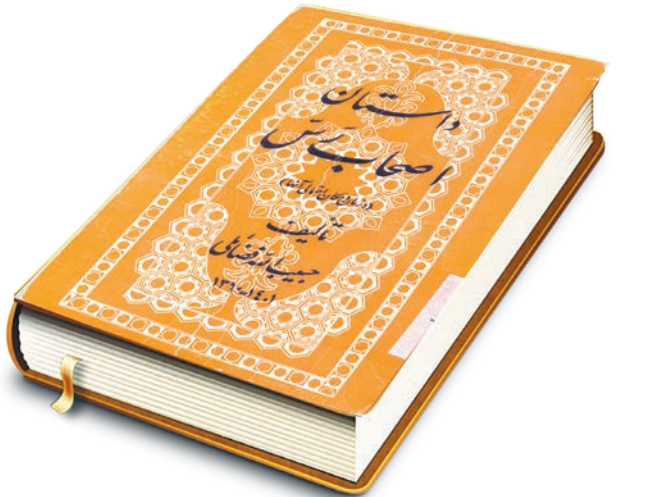 داستان
اصحاب رس
تألیف
حبیب الله فضائلی
۱۳۶۰-۱۴۰۱